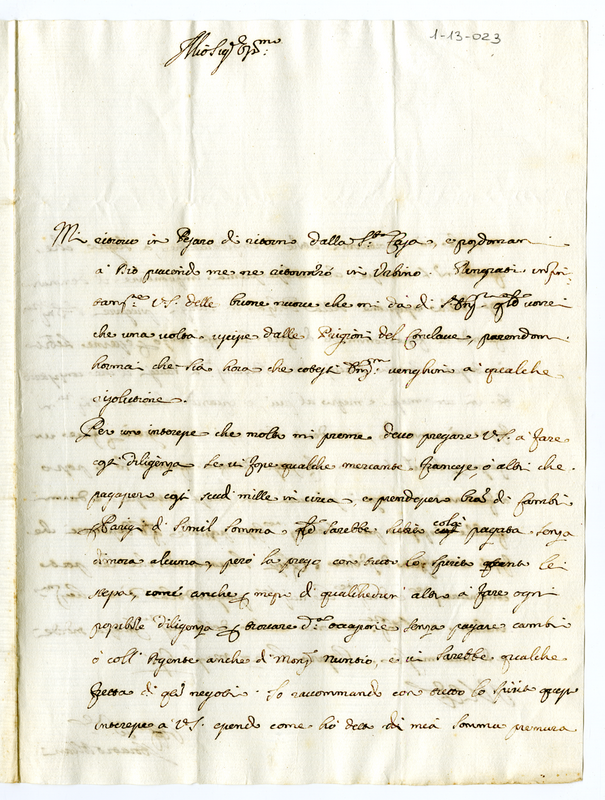 1-13-023
Illmo Sigr
Mi ritrovo in Pesaro di ritorno dalla Sta Casa, e posdomani
à Dio piacendo me ne ritornerò in Urbino. Ringratio
V.S. delle buone nuove che mi dà di vorrei
che una volta uscisse dalle Prigioni del Conclave, parendomi
hormai che sia hora che cotesti venghino à qualche
risolutione.
Per un interesse che molto mi preme devo pregare V.S. à fare
costì diligenza se vi fosse qualche mercante francese, ò altri che
pagasse costì scudi mille in circa, e prendesse di Cambi
Parigi di simil somma, sarebbe subito colà pagata senza
dimora alcuna, però la prego con tutto lo spirito lei
stessa, come anche mezo di qualchedun altro à fare ogni
possibile diligenza trovare occasione senza pagare cambi
ò coll'Agente anche di Monsr Nuntio, e vi sarebbe qualche
fretta di negotio. Lo raccommando con tutto lo spirito questo
interesse à V.S. essendo come hò detto di mia somma premura